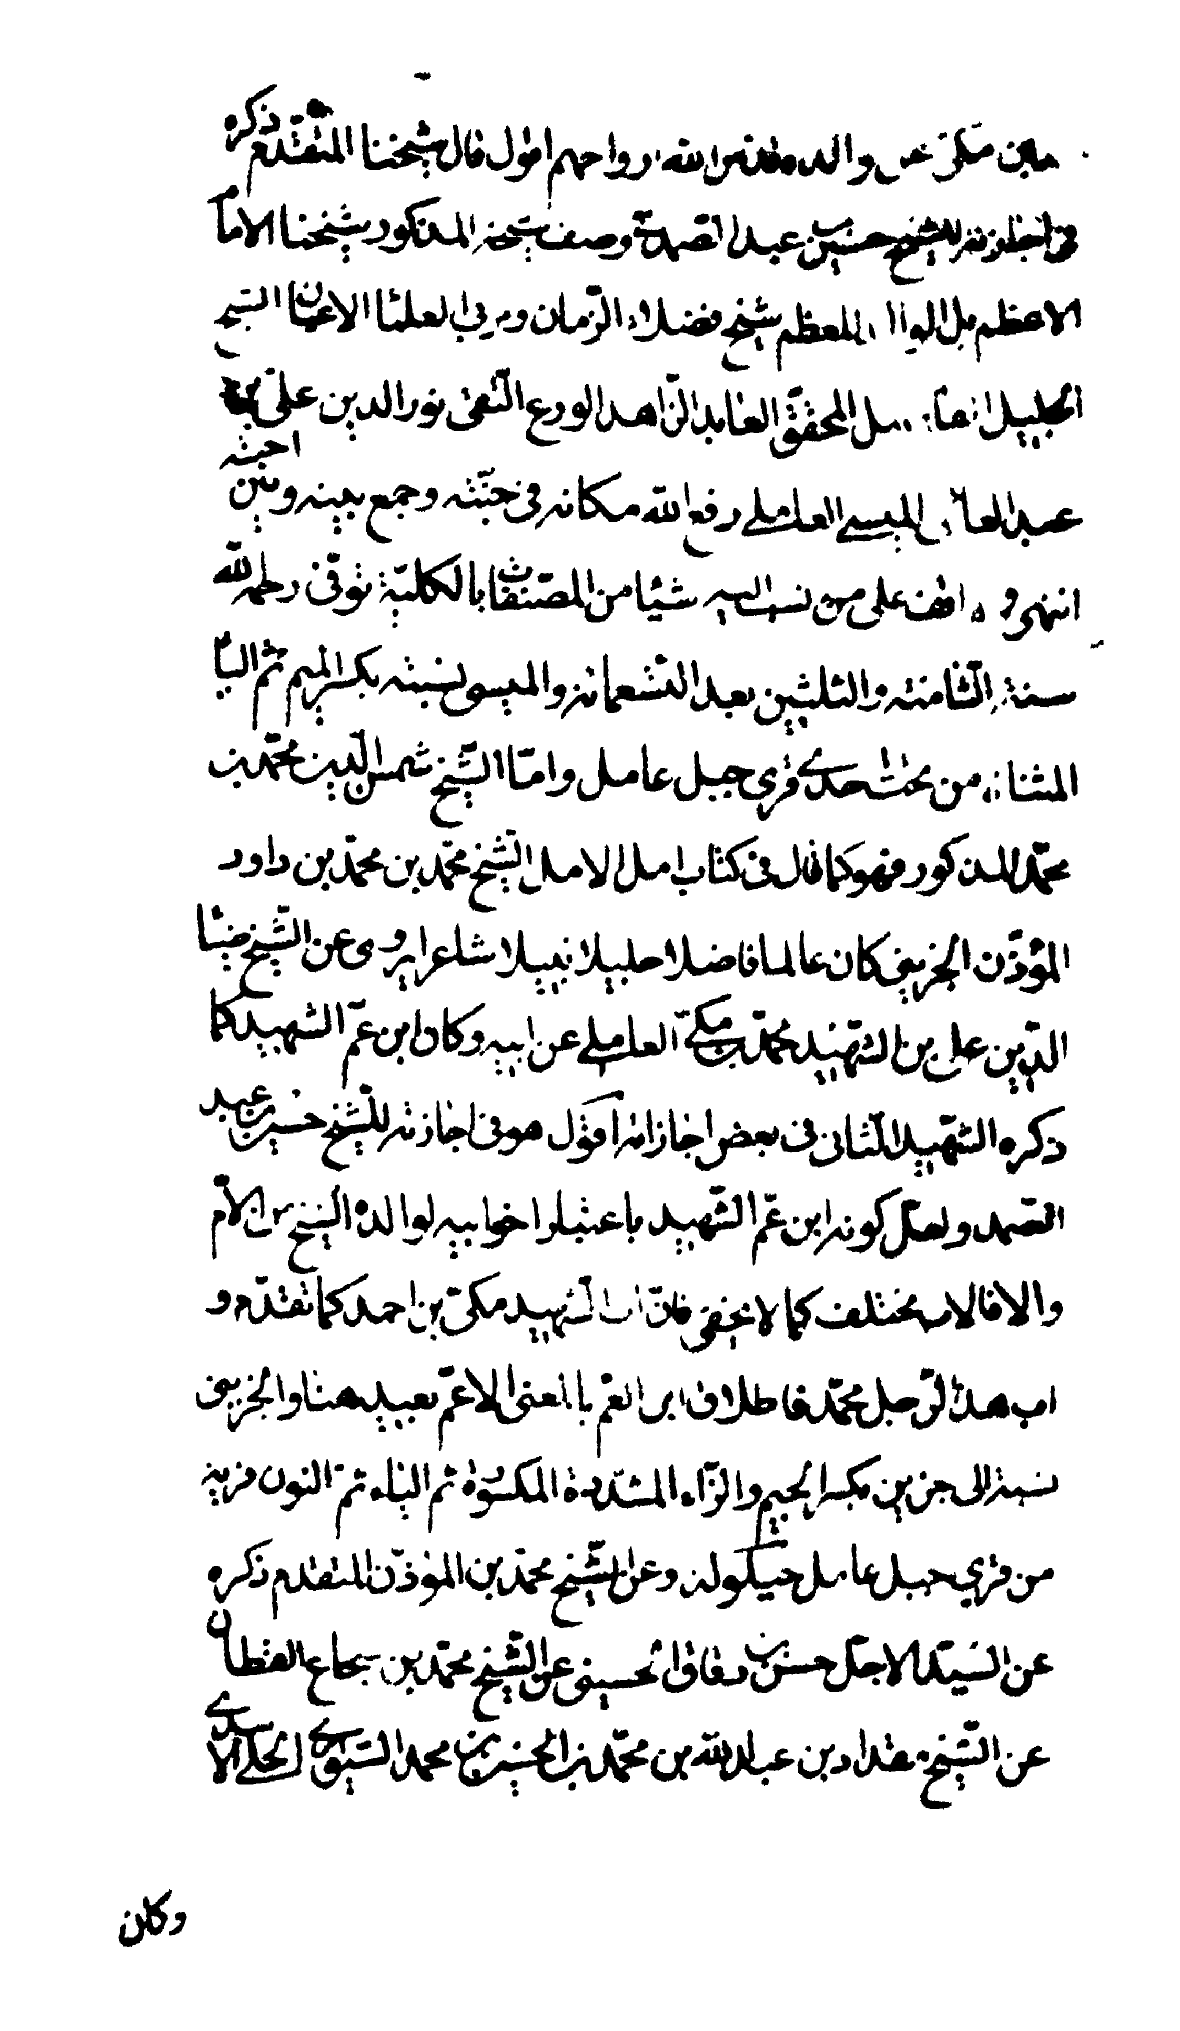 بن مكي عن والده قدس الله ارواحهم اقول قال شيخنا المتقدم ذكره
في اجازته للشيخ حسين بن عبد الصمد وصف شيخه المذكور بشيخنا الامام
الاعظم بل الوالد المعظم شيخ فضلاء الزمان ومربي العلماء الاعيان الشيخ
الجليل المحقق العابد الزاهد الورع التقي نور الدين علي بن
عبد العالي الميسي العاملي رفع الله مكانه في جنته وجمع بينه وبين احبته
انتهى و اقف على من نسب اليه شيئا من المصنفات بالكلية توفي رحمه الله
سنة الثامنة والثلثين بعد التسعمائة والميسي نسبته بكسر الميم ثم الياء
المثناة من تحت احدى قرى جبل عامل واما الشيخ شمس الدين محمد بن
محمد المذكور فهو كما قال في كتاب امل الامل الشيخ محمد بن محمد بن داود
المؤذن الجزيني كان عالما فاضلا جليلا نبيلا شاعرا يروى عن الشيخ ضياء
الدين علي بن الشهيد محمد بن مكي العاملي عن ابيه وكان ابن عم الشهيد كما
ذكره الشهيد الثاني في بعض اجازاته اقول هو في اجازته للشيخ حسين بن عبد
الصمد ولعل كونه ابن عم الشهيد باعتبار اخوابيه لوالده الشيخ من الام
والا فالاب مختلف كما لا يخفى فان اب الشهيد مكي بن احمد كما تقدم و
اب هذا الرجل محمد فاطلاق ابن العم بالمعنى الاعم بعيد هنا والجزيني
نسبة الى جزين بكسر الجيم والزاء المشددة المكسورة ثم الياء ثم النون قرية
من قرى جبل عامل وعن الشيخ محمد بن المؤذن المتقدم ذكره
عن السيد الاجل حسن بن دقاق الحسيني عن الشيخ محمد بن شجاع القطان
عن الشيخ مقداد بن عبد الله بن محمد بن الحسين بن محمد السيوري الحلي الاسدي
وكان